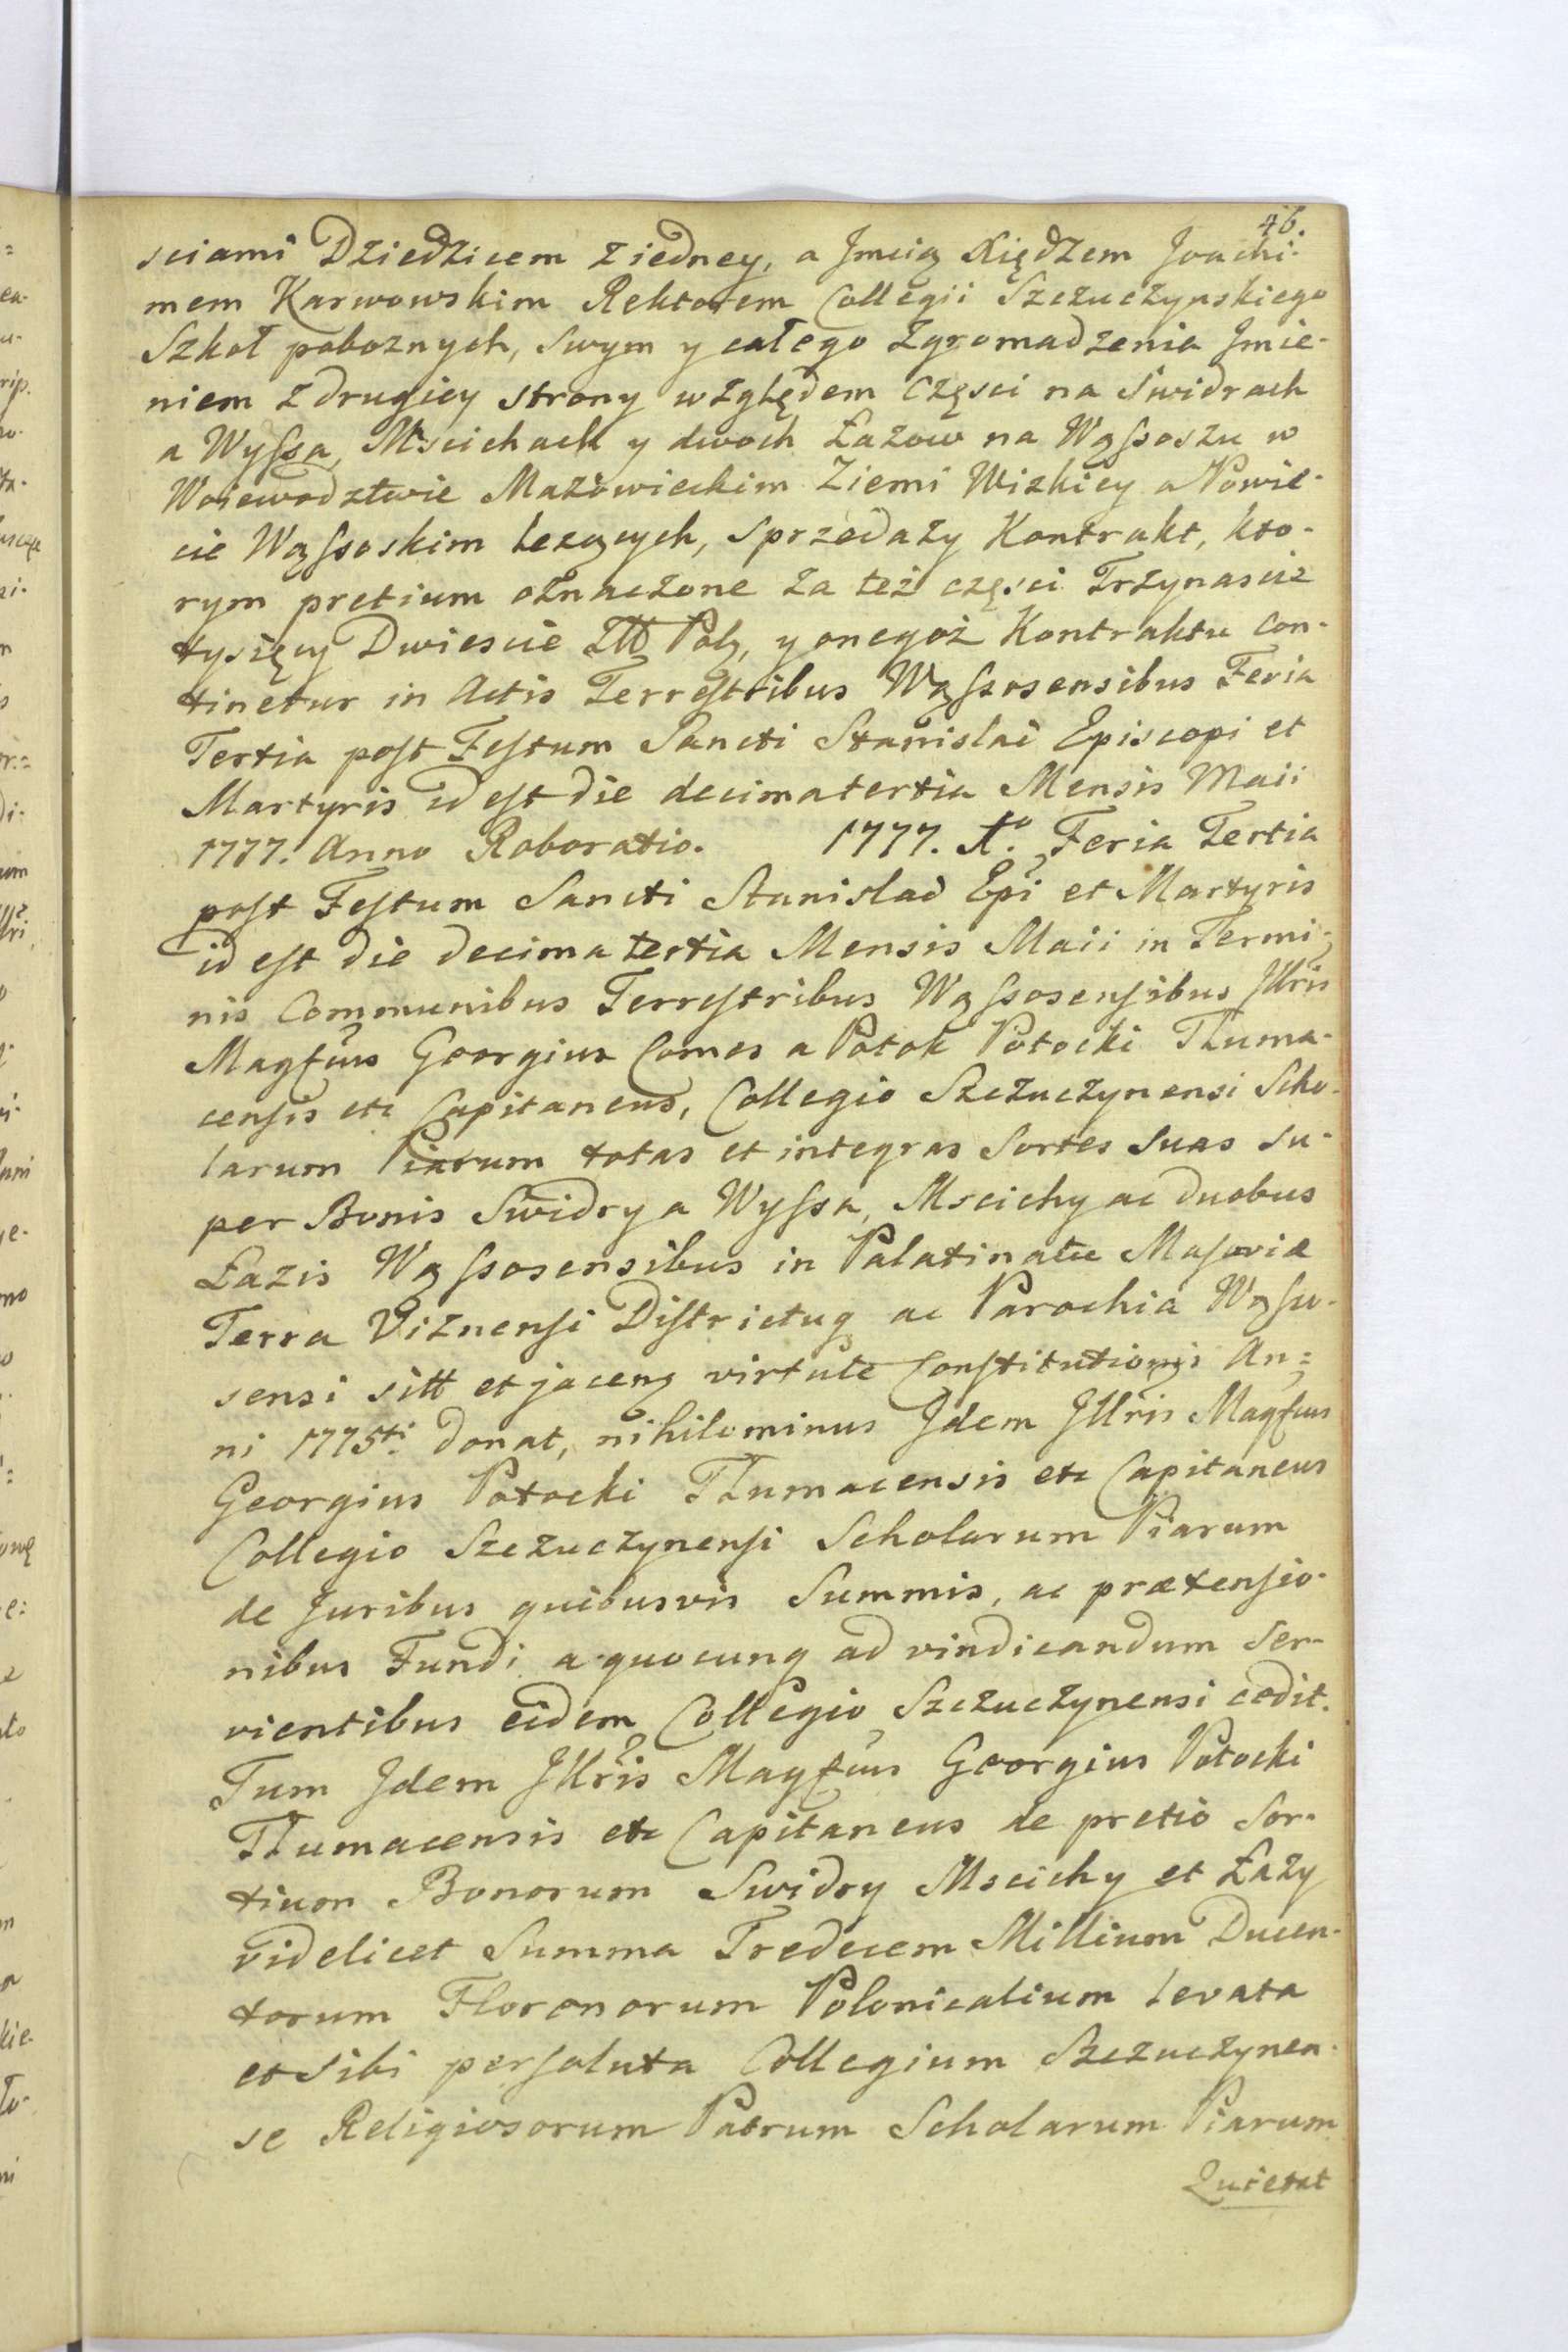 46.
sciami Dziedzicem z iedney, a Jmcią Xiędzem Joachi-
mem Karwowskim Rektorem Collegii Szczuczynskiego
Szkoł poboznych, Swym y całego Zgromadzenia Jmie-
niem z drugiey strony względem Częsci na Swidrach
a Wyssa, Mscichach y dwoch Łazow na Wąssoszu w
Woiewodztwie Mazowieckim Ziemi Wizkiey a Powie-
cie Wąssoskim lezących, Sprzedazy Kontrakt, kto-
rym pretium oznaczone za też części Trzynascie
tysięcy Dwiescie Złł Pol, y onegoż Kontraktu con-
tinetur in Actis Terrestribus Wąssosensibus Feria
Tertia post Festum Sancti Stanislai Episcopi et
Martyris id est die decimatertia Mensis Maii
1777. Anno Roboratio. 1777. Ao. Feria Tertia
post Festum Sancti Stanislai Epi et Martyris
id est die decima tertia Mensis Maii in Termi-
nis Communibus Terrestribus Wąssosensibus Jllris
Magfcus Georgius Comes a Potok Potocki Tłuma-
censis etc Capitaneus, Collegio Szczuczynensi Scho-
larum Piarum totas et integras Sortes Suas su-
per Bonis Swidry a Wyssa, Mscichy ac duobus
Łazis Wąssosensibus in Palatinatu Masoviæ
Terra Viznensi Districtuq ac Parochia Wąsso-
sensi sitt et jacenq virtute Constitutionis An-
ni 1775ti donat, nihilominus Jdem Jllris Magfcus
Georgius Potocki Tłumacensis etc Capitaneus
Collegio Szczuczynensi Scholarum Piarum
de Juribus quibusvis Summis, ac prætensio-
nibus Fundi a quocunq ad vindicandum Ser-
vientibus eidem Collegio Szczuczynensi cedit.
Tum Jdem Jllris Magfcus Georgius Potocki
Tłumacensis etc Capitaneus de pretio Sor-
tium Bonorum Swidry Mscichy et Łazy
videlicet Summa Tredecem Millium Ducen-
torum Florenorum Polonicalium levata
et sibi persoluta Collegium Szczuczynen-
se Religiosorum Patrum Scholarum Piarum
Quietat